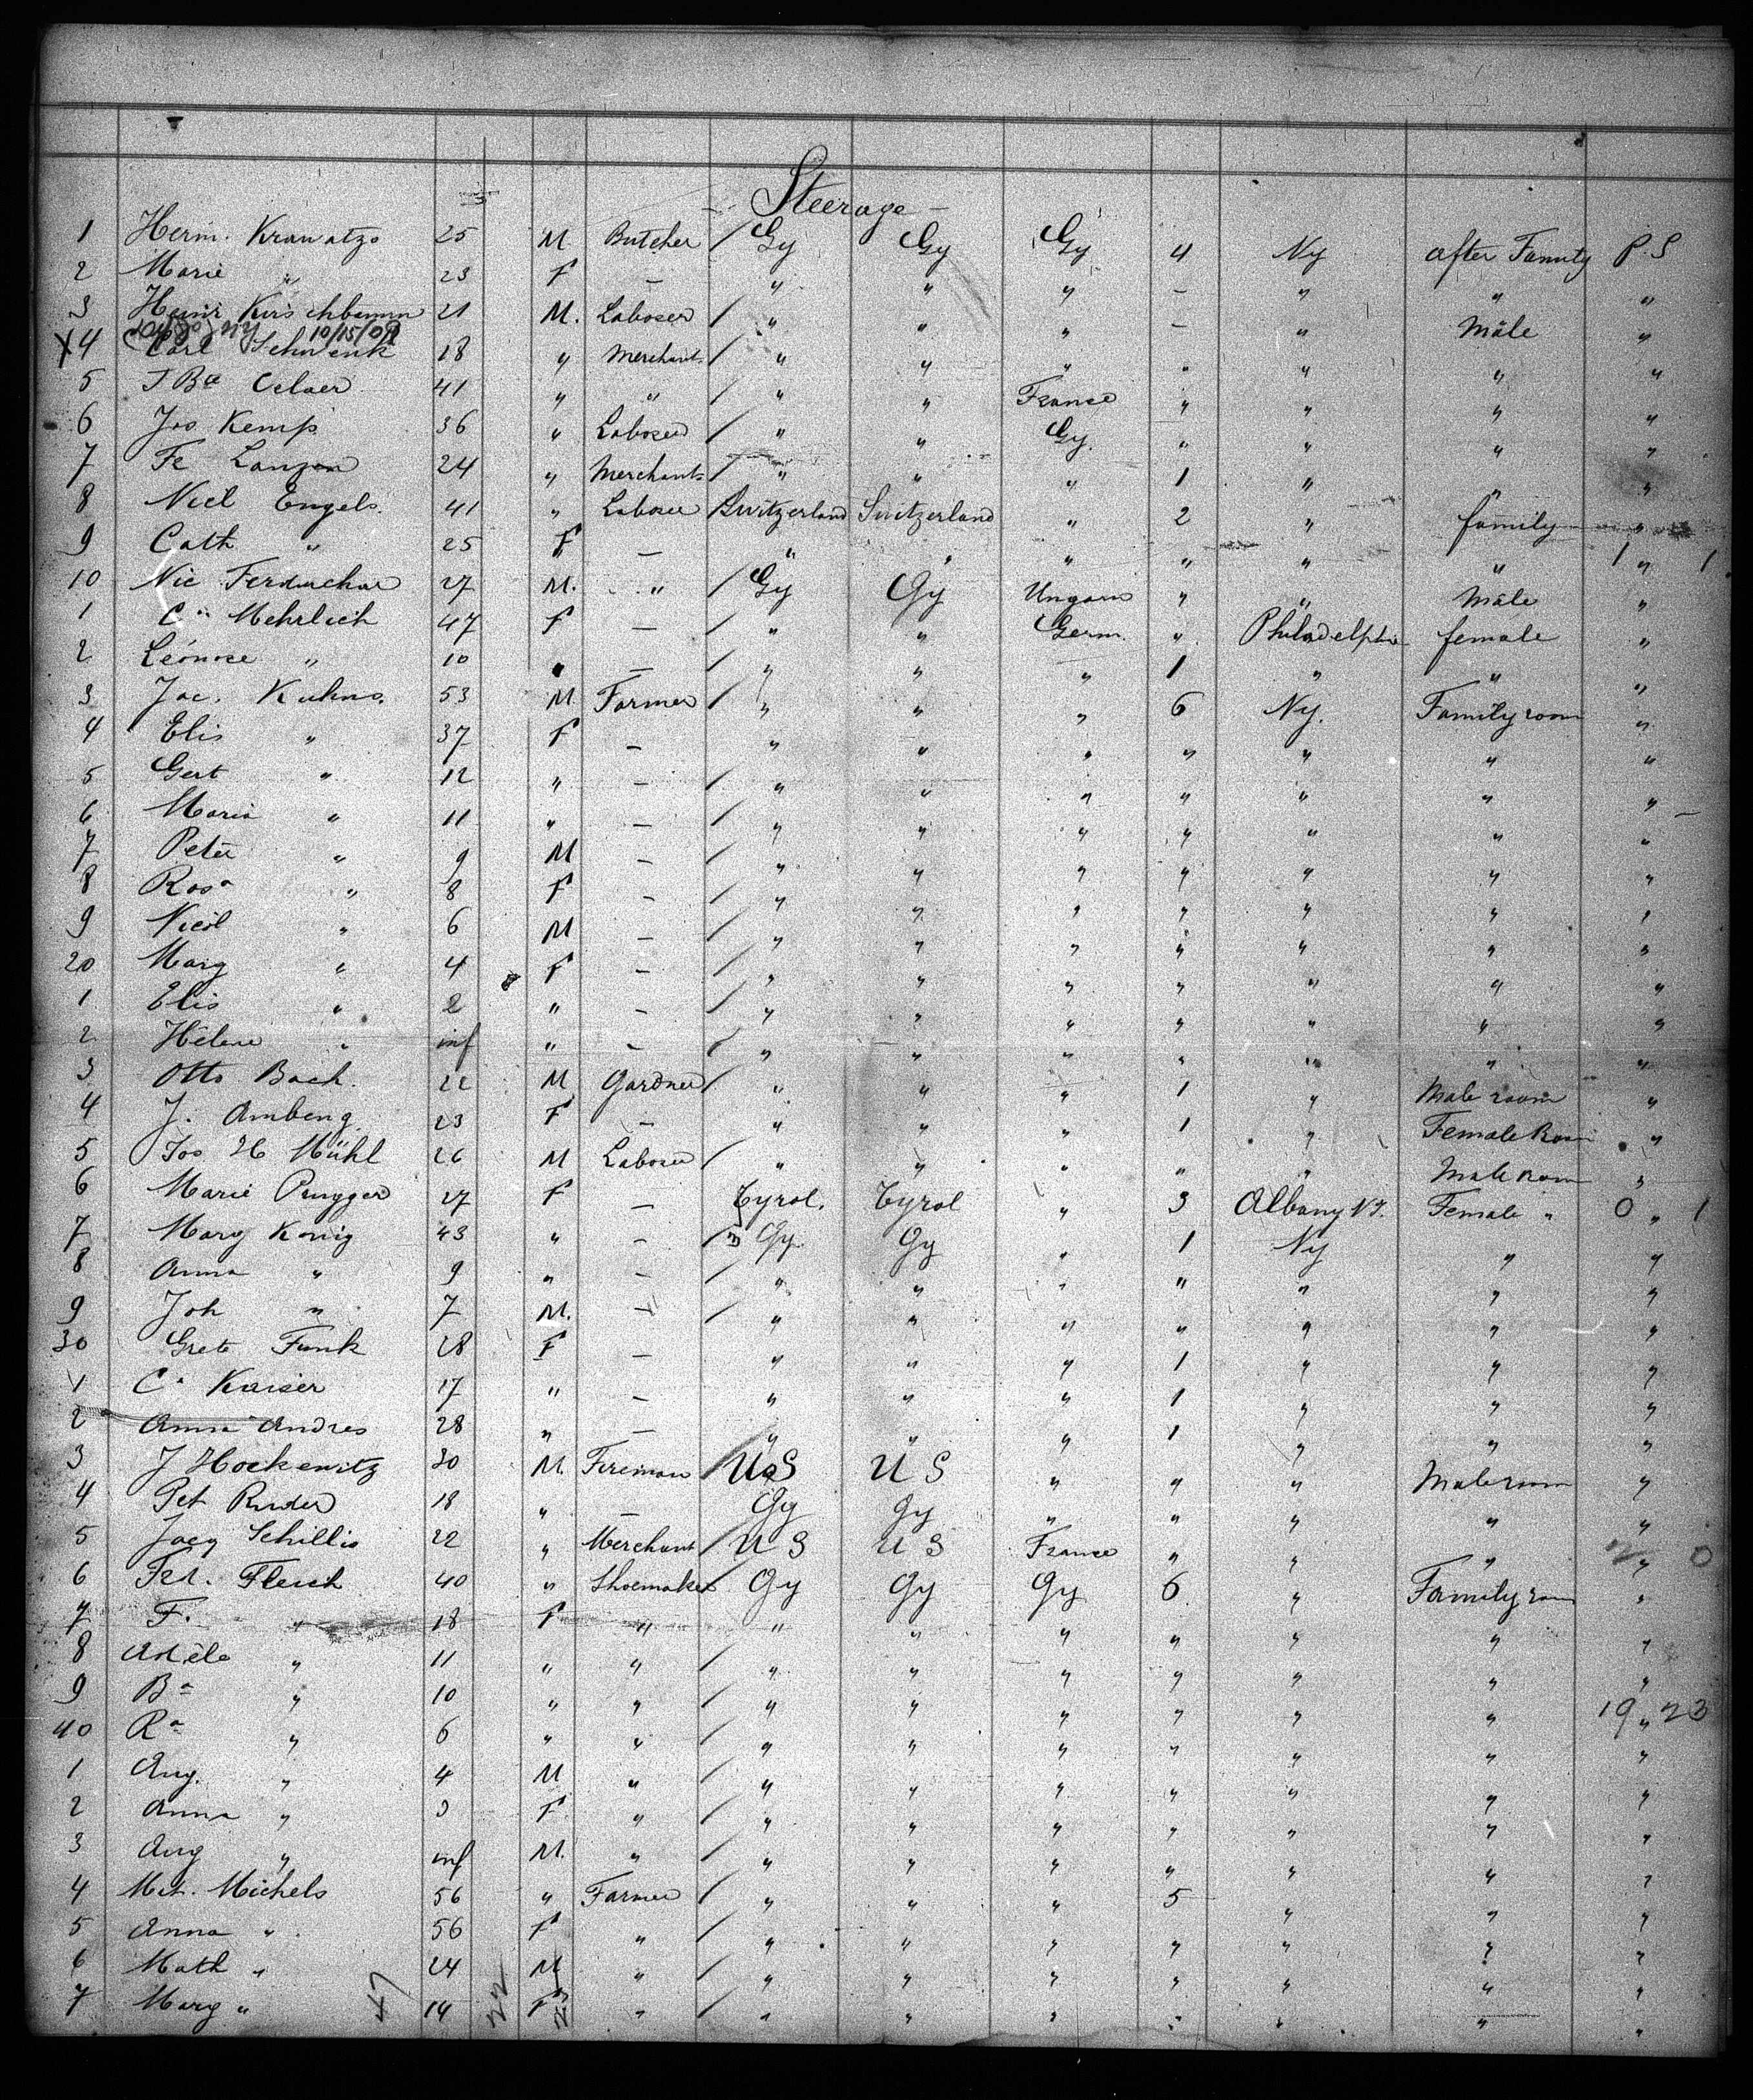 - Steerage -
1 Herm. Krawatzo 25 M Butcher / Gy Gy Gy 4 Ny after Family P. S
2 Marie " 23 F — " " " - " " "
3 Heinr Kirschbaumm 21 M. Laboser / " " " - " Male "
10/15/09
X4 Carl Schwenk 18 " Merchant / " " " " " " "
5 41 " " " " France " " " "
6 Jos Kemp 36 " Laboser / " " Gy. " " " "
7 Fe 24 " Merchant / " " " 1 " " "
8 Nicl Engels. 41 " Laboser Switzerland Switzerland " 2 " family "
9 Cath " 25 F — " " " " " " 1 " 1
10 Nic 27 M. " / Gy Gy Ungarn " " Male "
1 Mehrlich 47 F — / " " Germ. " Philadelphia female "
2 Leonore " 10 " — / " " " 1 " " "
3 Jac. Kuhns. 53 M Farmer / " " " 6 Ny. Family room "
4 Elis " 37 F — " " " " " " "
5 Gert " 12 " — / " " " " " " "
6 Maria " 11 " — / " " " " " " "
7 Peter " 9 M — / " " " " " " "
8 Rosa " 8 F — / " " " " " " "
9 Nicol " 6 M — / " " " " " " "
20 Marg " 4 F — / " " " " " " "
1 Elis " 2 " — / " " " " " " "
2 Helene " inf " — / " " " " " " "
3 Otto Bach. 22 M Gardner / " " " 1 " Male room "
4 J. Amberg 23 F — " " " 1 " Female Room "
5 Jos H Mühl 26 M Laboser / " " " " " Male Room "
6 Marie Prugger 27 F — Tyrol. Tyrol " 3 Albany NY. Female " 0 " 1
7 Marg König 43 " — " Gy Gy " 1 Ny " "
8 Anna " 9 " — / " " " " " " "
9 Joh " 7 M. — / " " " " " " "
30 Grete Funk 28 F — " " " 1 " " "
1 Kaiser 17 " — " " " 1 " " "
2 Anna Andres 28 " — " " " 1 " " "
3 J Hockewitz 30 M. Fireman / U S U S " " " Male room "
4 Pet Ruder 18 " — Gy Gy " " " " "
5 Schillis 22 " Merchant / U S U S France " " " " 0
6 Fer. Fleisch 40 " Shoemaker Gy Gy Gy 6 " Family room "
7 F. " 18 F " " " " " " " "
8 Adele " 11 " " / " " " " " " "
9 Ba " 10 " " / " " " " " " "
19 " 23
40 Ra " 6 " " / " " " " " " "
1 Aug. " 4 M " / " " " " " " "
2 Anna " 3 F " / " " " " " " "
3 Aug " inf M. " / " " " " " " "
4 Mich. Michels 56 " Farmer / " " " 5 " " "
5 Anna " 56 F " / " " " " " " "
6 Math " 24 M " / " " " " " " "
7 Marg " 14 F " / " " " " " " "
47 22